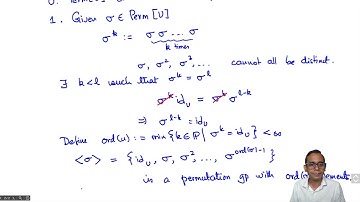 1. Given σ ∈ Perm [U]
σ^k := σ σ ... σ
k times
σ, σ², σ³, ... cannot all be distinct.
∃ k < l such that σ^k = σ^l
σ^k id_U = σ^k σ^{l-k}
⇒ σ^{l-k} = id_U
Define ord(u) := min{k ∈ ℙ | σ^k = id_U} < ∞
⟨σ⟩ = {id_U, σ, σ², ..., σ^{ord(σ)-1}}
is a permutation gp with ord(σ) elements.